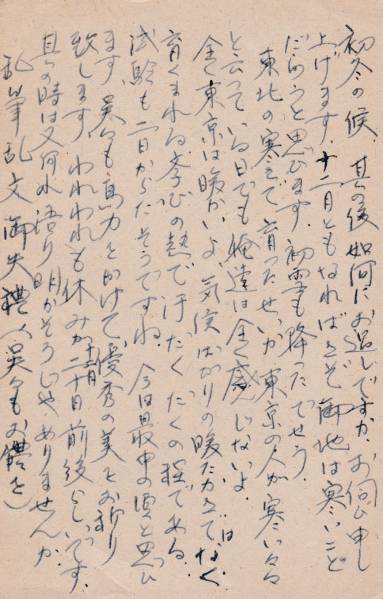 初冬の候、其の後如何にお過しですか、お伺ひ申し
上げます、十二月ともなればさぞ御地は寒いこと
だらうと思ひます、初雪も降ったでせう、
東北の寒さで育ったせいか東京の人が寒い々々
と云っている日でも俺達は全く感じないよ、
全く東京は暖かいよ 気候ばかりの暖たかさではなく
育くまれる学びの熱で汗だくだくの程である、
試験も二日からださうですね、今は最中の頃と思ひ
ます、呉々も馬力をかけて優秀の美をお祈り
致します、われわれも休みが十二月二十日前後らしいです、
其の時は又何れ語り明かそうじゃありませんか、
乱筆乱文御失禮、(呉々もお體を)